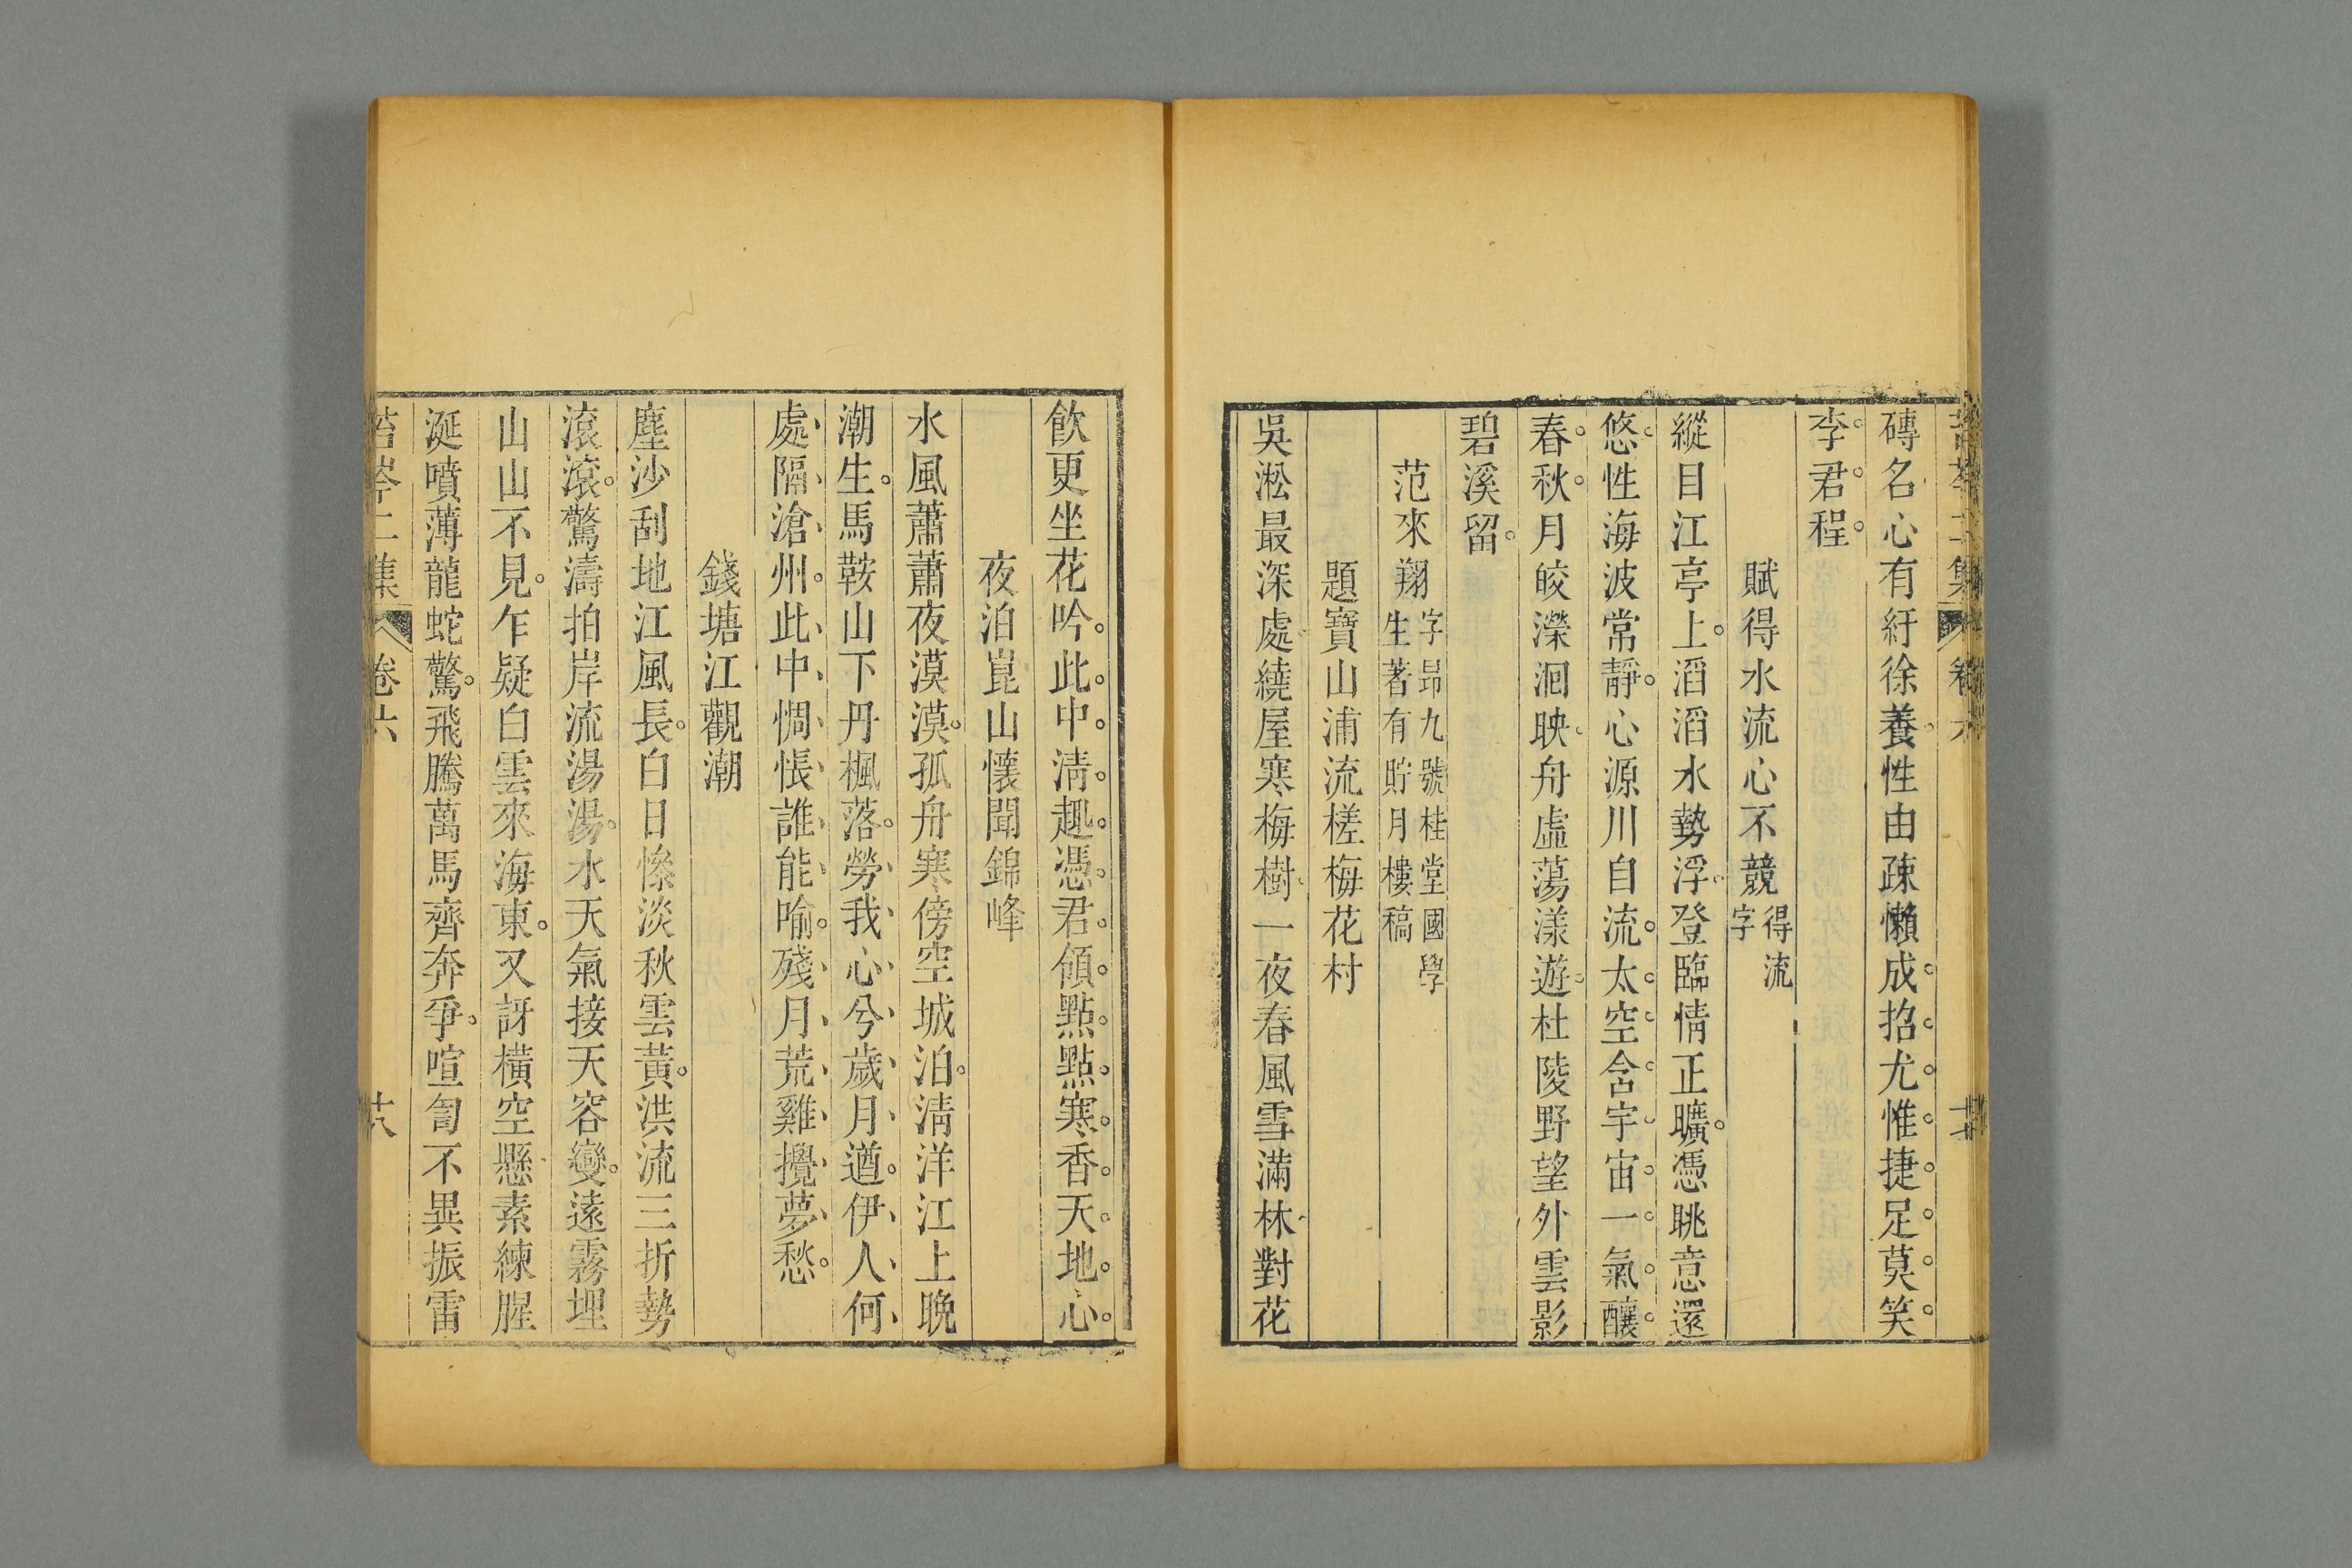 磚名心有紆徐養性由疎懶成招尤惟捷足莫笑
李君程
賦得水流心不競得流
字
縱目江亭上滔滔水勢浮登臨情正曠憑眺意還
悠性海波常靜心源川自流太空含宇宙一氣釀
春秋月皎濚洄映舟虛蕩漾遊杜陵野望外雲影
碧溪留
范來翔字昻九號桂堂國學
生著有貯月樓稿
題寶山浦流槎梅花村
吳淞最深處繞屋寒梅樹一夜春風雪滿林對花
飲更坐花吟此中淸趣憑君領點點寒香天地心
夜泊崑山懷聞錦峰
水風蕭蕭夜漠漠孤舟寒傍空城泊淸洋江上晚
潮生馬鞍山下丹楓落勞我心兮歲月遒伊人何
處隔滄州此中惆悵誰能喻殘月荒雞攪夢愁
錢塘江觀潮
塵沙刮地江風長白日慘淡秋雲黃洪流三折勢
滾滾驚濤拍岸流湯湯水天氣接天容變遠霧埋
山山不見乍疑白雲來海東又訝橫空懸素練腥
涎噴薄龍蛇驚飛騰萬馬齊奔爭喧匐不異振雷
苔岑二集 卷六 十八